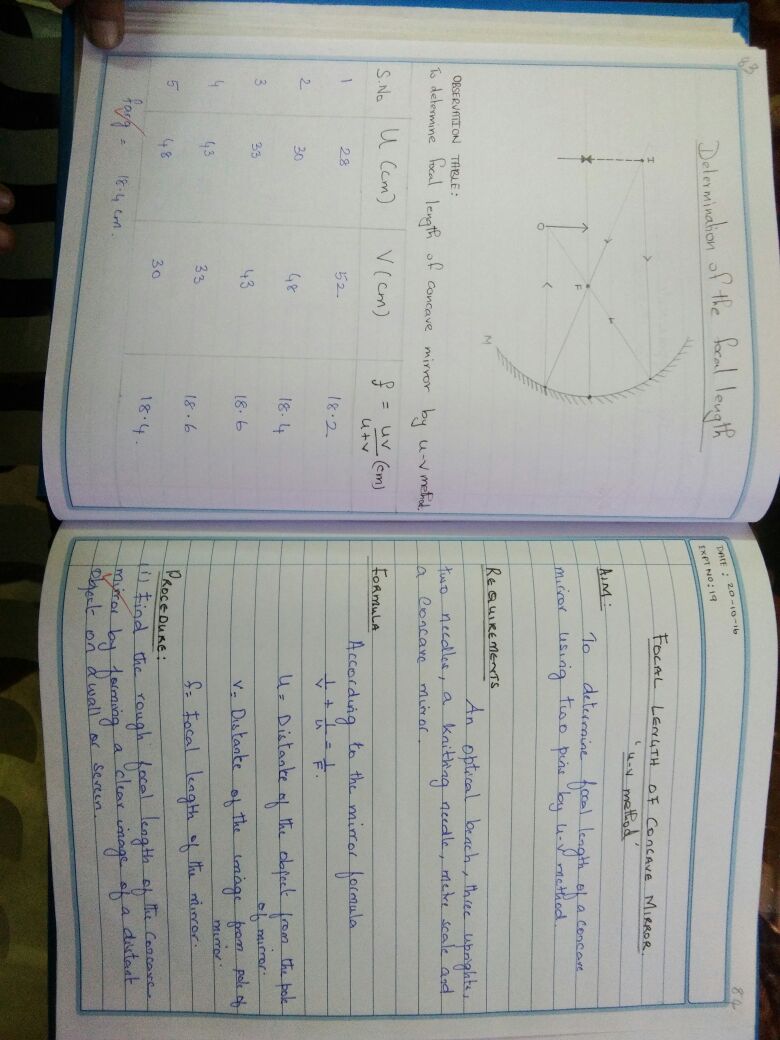 83
Determination of the focal length
I
O
F
M
To determine focal length of concave mirror by u-v method.
OBSERVATION TABLE:
S.No U (cm) V (cm) f = uv/u+v (cm)
1 28 52 18.2
2 30 48 18.4
3 33 43 18.6
4 43 33 18.6
5 48 30 18.4.
favg = 18.4 cm.
84
DATE : 20-10-16
EXPT NO: 19
FOCAL LENGTH OF CONCAVE MIRROR.
'u-v method'
AIM:
To determine focal length of a concave
mirror using two pins by u-v method.
REQUIREMENTS
An optical bench, three uprights,
two needles, a knitting needle, metre scale and
a concave mirror.
FORMULA
According to the mirror formula
1/v + 1/u = 1/F.
u = Distance of the object from the pole
of mirror.
v = Distance of the image from pole of
mirror.
f = Focal length of the mirror.
PROCEDURE:
(i) Find the rough focal length of the concave
mirror by forming a clear image of a distant
object on a wall or screen.